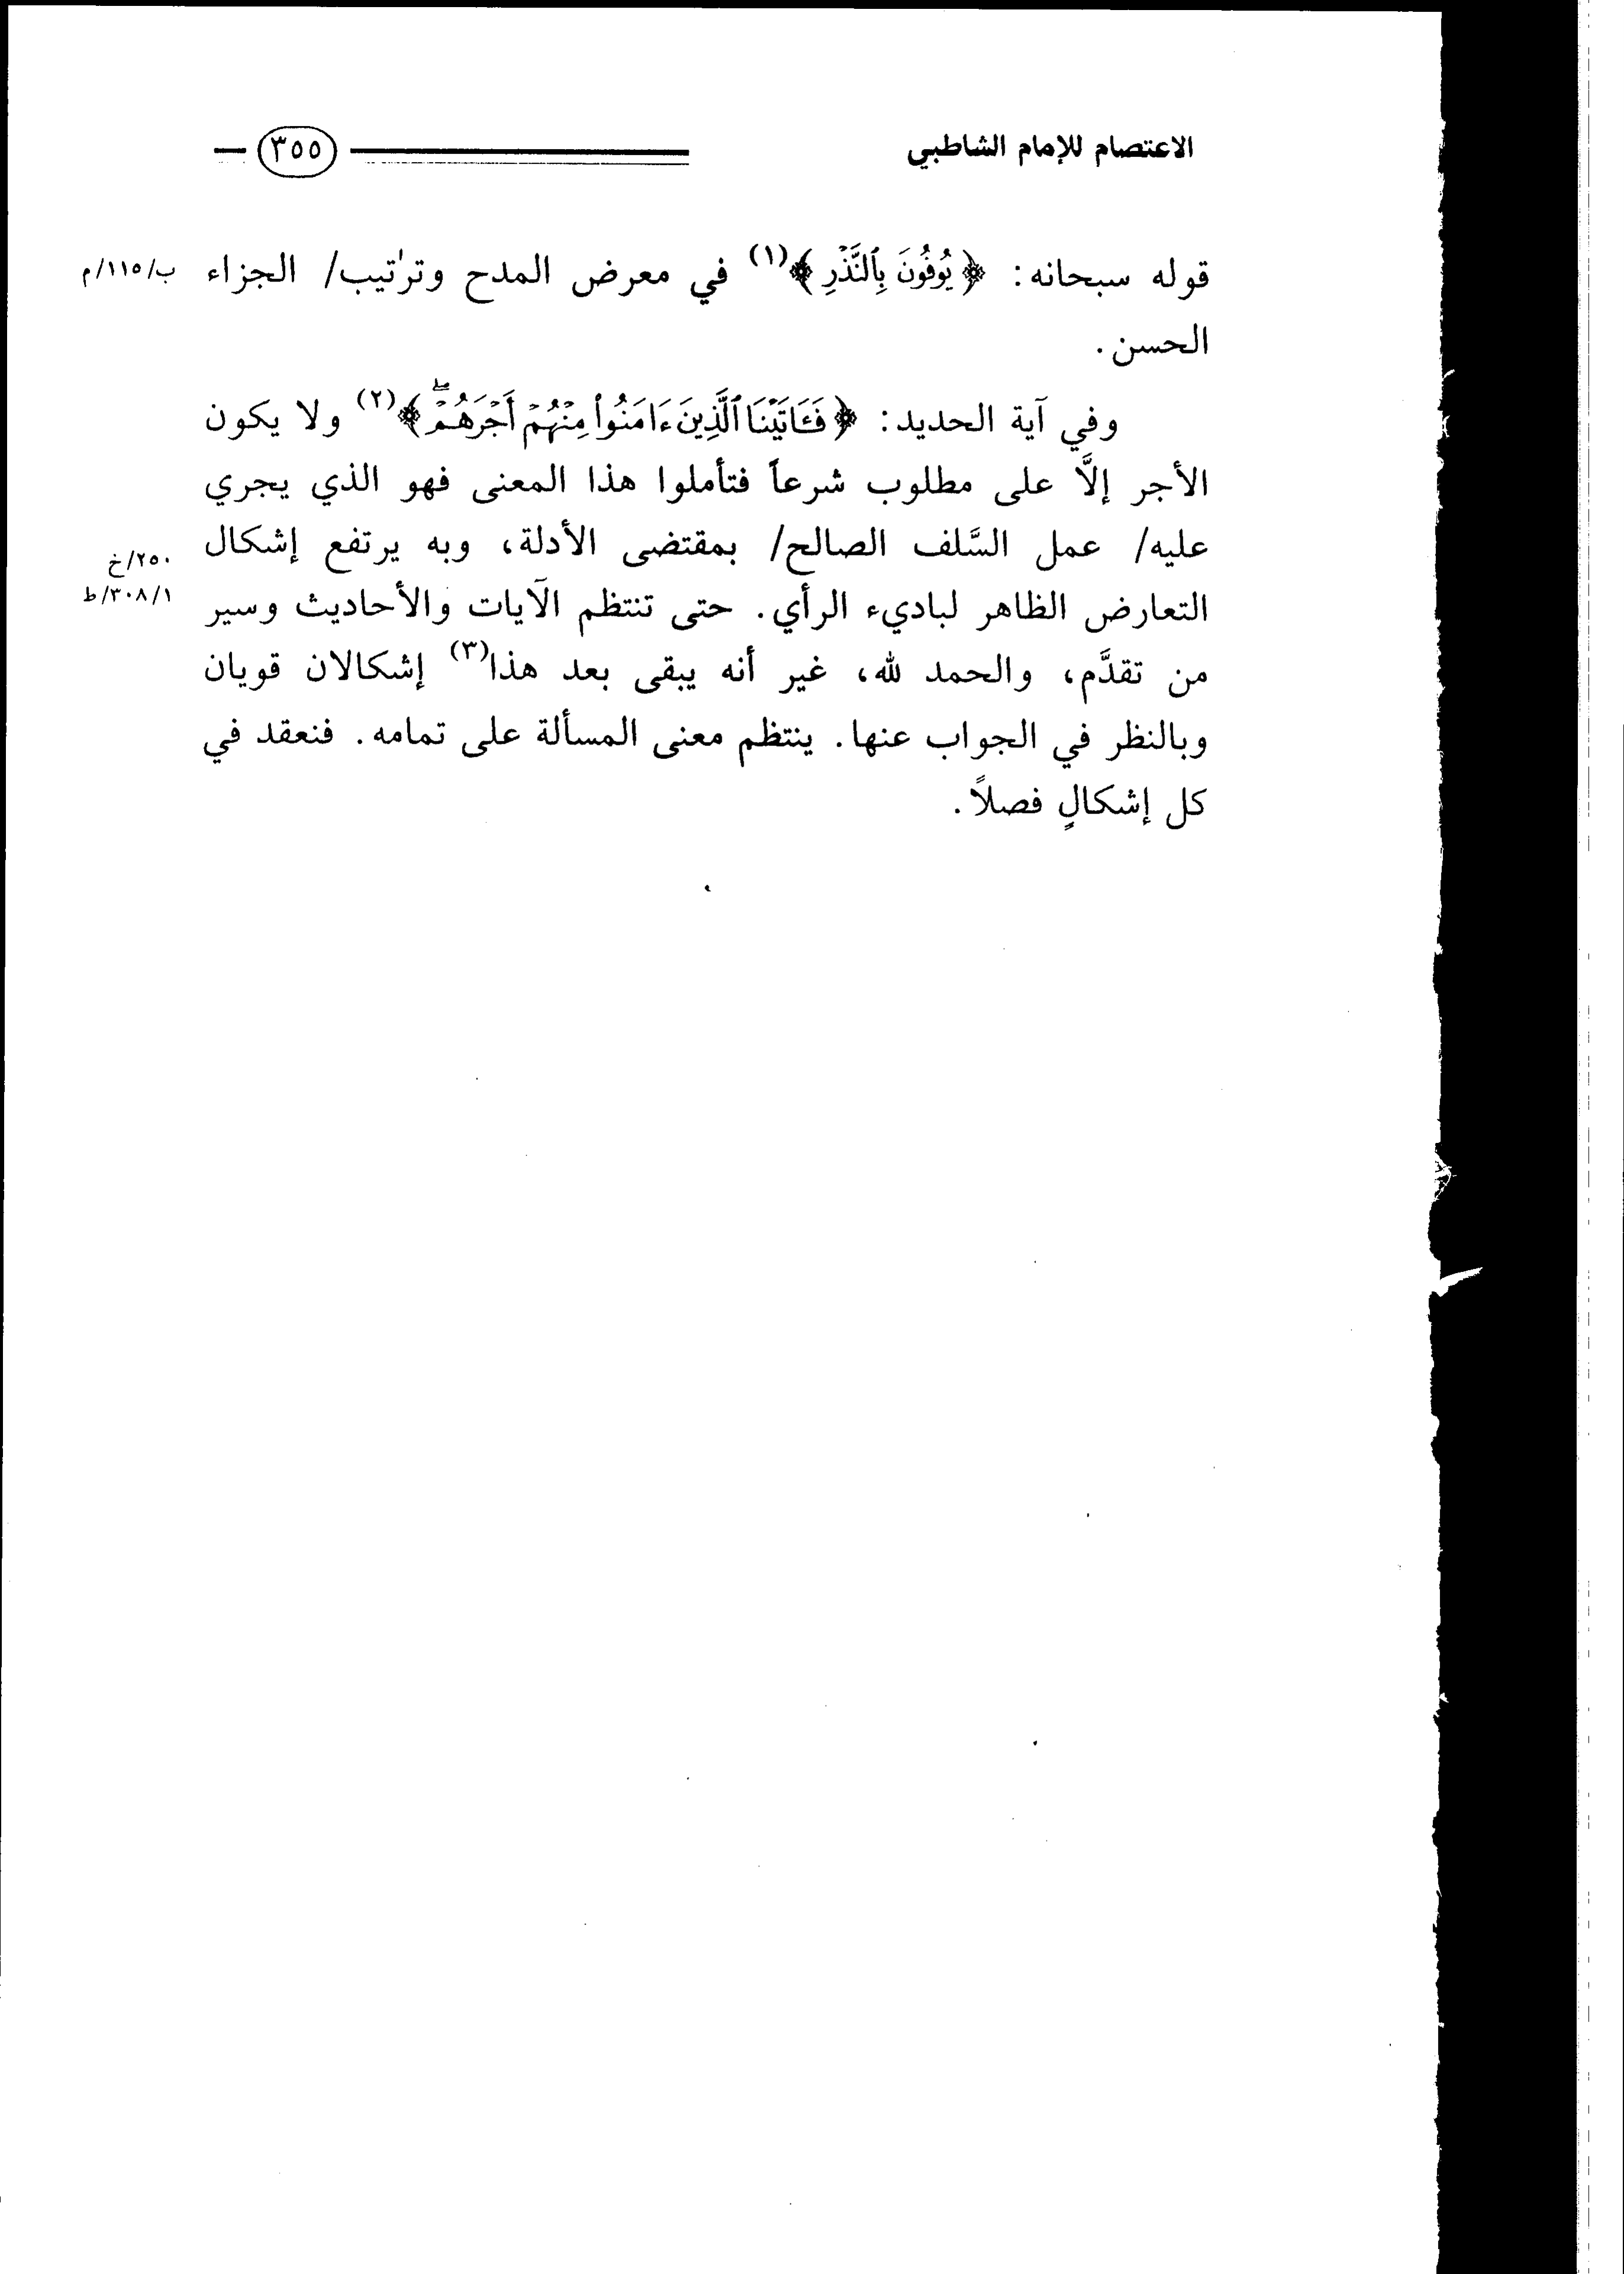 الاعتصام للإمام الشاطبي (٣٥٥)
قوله سبحانه: ﴿يُوفُونَ بِٱلنَّذْرِ﴾(١) في معرض المدح وترتيب/ الجزاء ب/١١٥/م
الحسن.
وفي آية الحديد: ﴿فَـَٔاتَيْنَا ٱلَّذِينَ ءَامَنُوا۟ مِنْهُمْ أَجْرَهُمْ ۖ﴾(٢) ولا يكون
الأجر إلَّا على مطلوب شرعاً فتأملوا هذا المعنى فهو الذي يجري
عليه/ عمل السَّلف الصالح/ بمقتضى الأدلة، وبه يرتفع إشكال ٢٥٠/خ
التعارض الظاهر لباديء الرأي. حتى تنتظم الآيات والأحاديث وسير ٣٠٨/١/ط
من تقدَّم، والحمد لله، غير أنه يبقى بعد هذا(٣) إشكالان قويان
وبالنظر في الجواب عنها. ينتظم معنى المسألة على تمامه. فنعقد في
كل إشكالٍ فصلاً.